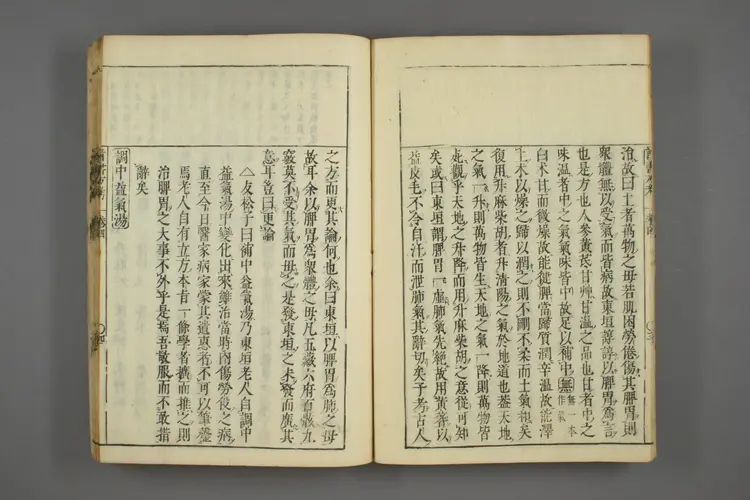 治故曰土者萬物之母若飢困勞倦傷其脾胃則
衆體無以受氣而皆病故東垣諄諄以脾胃爲言
也是方也人參黃芪甘艸甘溫之品也甘者中之
味溫者中之氣氣味皆中故足以補中無一本無作氣
白朮甘而微燥故能健脾當歸質潤辛溫故能澤
土朮以燥之歸以潤之則不剛不柔而土氣和矣
復用升麻柴胡者升清陽之氣於地道也蓋天地
之氣一升則萬物皆生天地之氣一降則萬物皆
死觀乎天地之升降而用升麻柴胡之意從可知
矣或曰東垣謂脾胃一虛肺氣先絕故用黃芪以
益皮毛不令自汗而泄肺氣其辭切矣予考古人
之方而更其論何也余曰東垣以脾胃爲肺之母
故耳余以脾胃爲衆體之母凡五臟六府百骸九
竅莫不受其氣而母之是發東垣之未發而廣其
意耳豈曰更論
△友松子曰補中益氣湯乃東垣老人自調中
益氣湯中變化出來雖治當時內傷勞役之病
直至今日醫家病家蒙其遺惠者不可以筆罄
焉老人自有立方本旨一條學者舊而推之則
治脾胃之大事不外乎是焉吾敬服而不敢措
辭矣
調中益氣湯